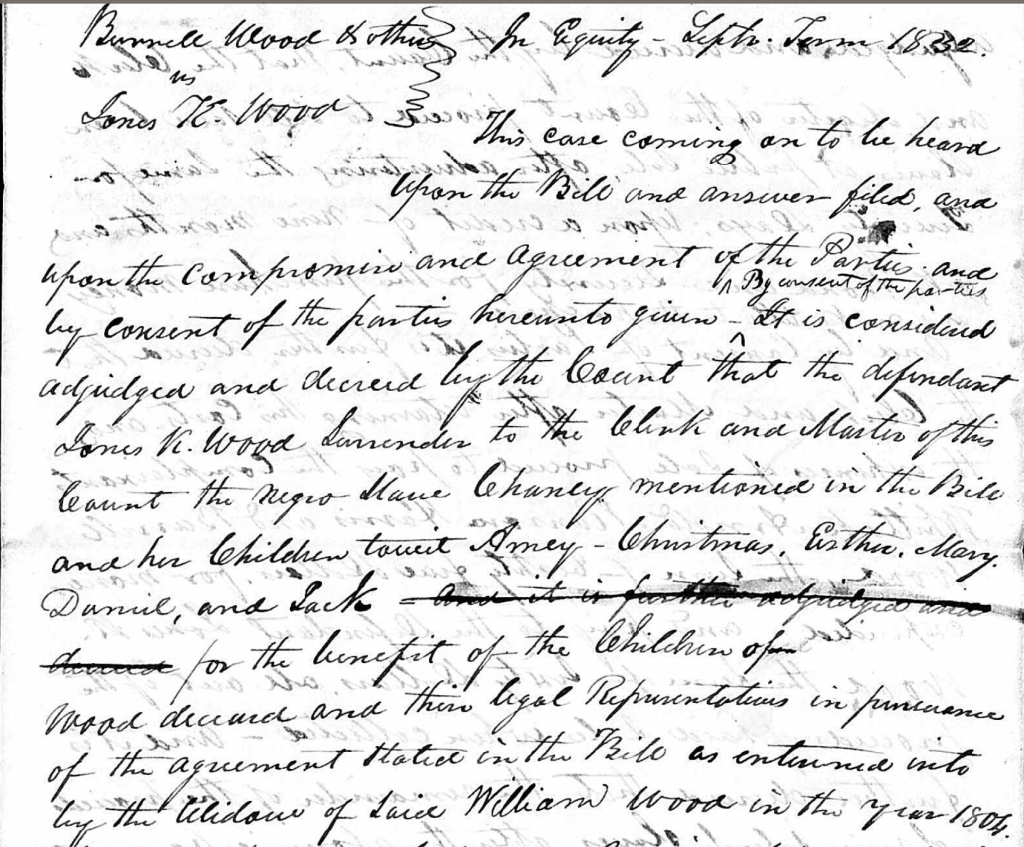 Burwell Wood & others In Equity - Septr. Term 1832.
vs
Jones K. Wood
This case coming on to be heard
upon the Bill and answer filed, and
upon the compromise and agreement of the Parties and
By consent of the parties
by consent of the parties hereunto given - It is considered
adjudged and decreed by the Court that the defendant
Jones K. Wood Surrender to the Clerk and Master of this
Court the negro slave Chaney mentioned in the Bill
and her Children towit Amey - Christmas, Esther, Mary,
Daniel, and Jack - and it is further adjudged and
decreed for the benefit of the Children of
Wood deceased and their legal Representatives in pursuance
of the agreement stated in the Bill as entered into
by the Widow of Said William Wood in the year 1804.